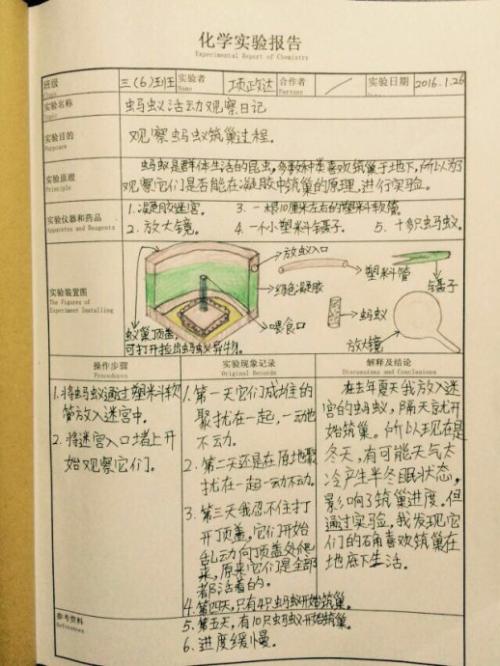 化学实验报告
Experimental Report of Chemistry
班级 三(6)班 实验者 项政达 合作者 / 实验日期 2016.1.26
Name Partner
实验名称 蚂蚁活动观察日记
实验目的 观察蚂蚁筑巢过程。
Purpose
实验原理 蚂蚁是群体生活的昆虫,多数种类喜欢筑巢于地下,所以为了
Principle 观察它们是否能在凝胶中筑巢的原理,进行实验。
实验仪器和药品 1.凝胶迷宫。 3.一根10厘米左右的塑料软管。
Apparatus and Reagents 2.放大镜。 4.一个小塑料镊子。 5.十多只蚂蚁。
实验装置图
The Figures of
Experiment Installing
放蚁入口
绿色凝胶
喂食口
塑料管
镊子
蚂蚁
放大镜
蚁巢顶盖,
操作步骤
Procedures
1.将蚂蚁通过塑料软
管放入迷宫中。
2.将迷宫入口堵上开
始观察它们。
实验现象记录
Original Records
1.第一天它们成堆的
聚扰在一起,一动也
不动。
2.第二天还是在原地聚
扰在一起一动不动。
3.第三天我忍不住打
开顶盖,它们开始
乱动向顶盖处爬
来,原来它们是全部
都活着的。
4.第四天,只有4只蚂蚁开始筑巢。
5.第五天,有10只蚂蚁开始筑巢。
6.进度缓慢。
解释及结论
Discussions and Conclusions
在去年夏天我放入迷
宫的蚂蚁,隔天就开
始筑巢。所以现在是
冬天,有可能天气太
冷产生半冬眠状态,
影响了筑巢进度。但
通过实验,我发现它
们的确喜欢筑巢在
地底下生活。
参考资料
References